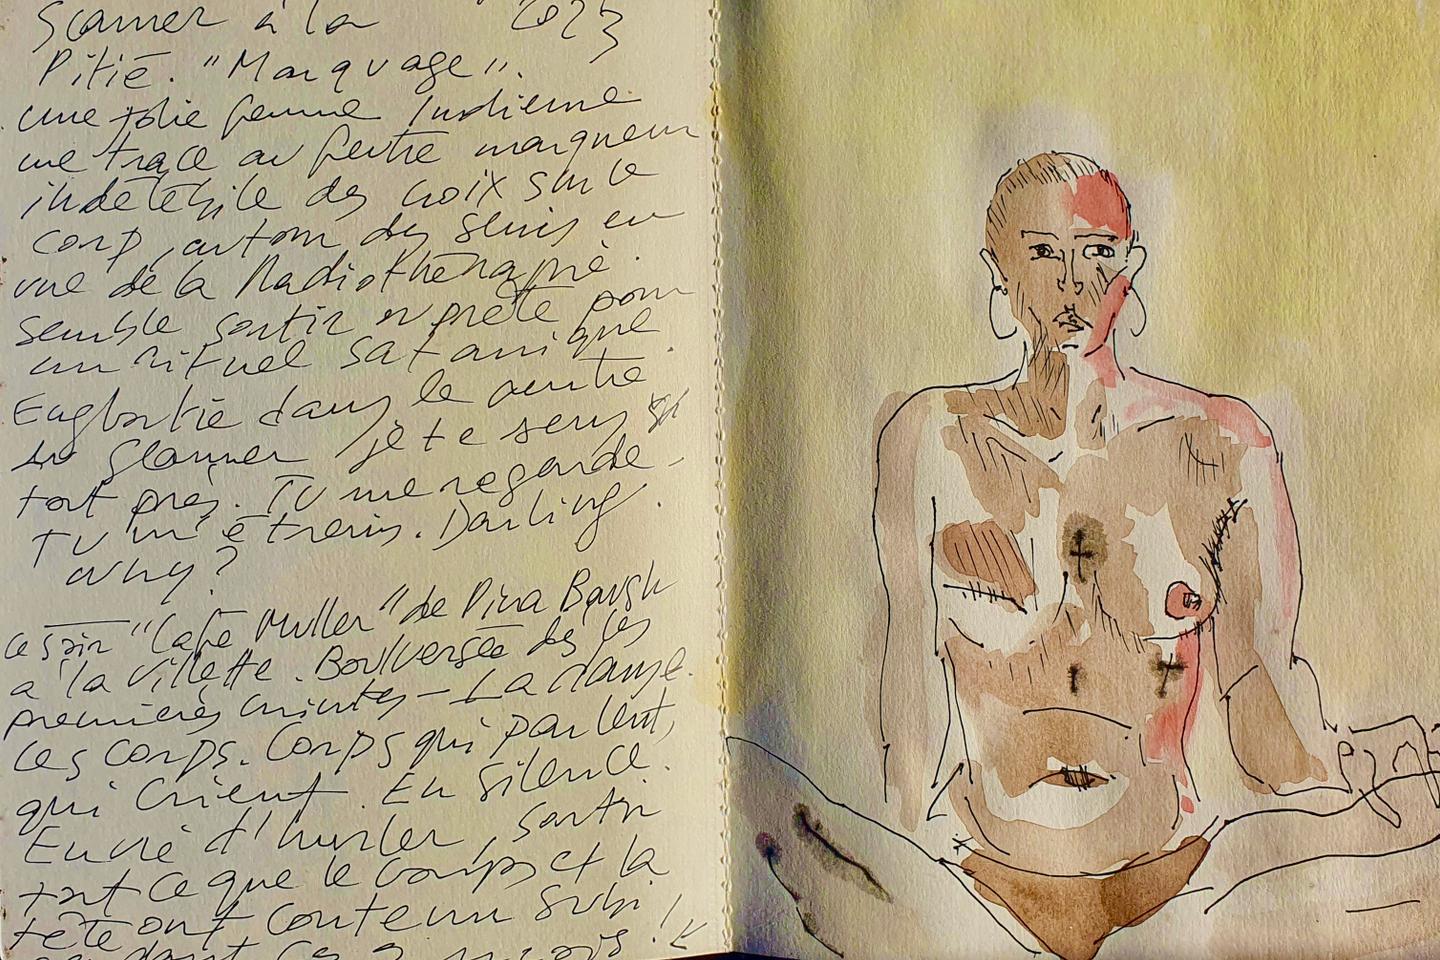 Scanner à la 2023
Pitié. "Marquage".
une jolie femme Indienne
me trace au feutre marqueur
indélébile des croix sur le
corp, autour des seins en
vue de la Radiothérapie.
semble sortir prête pour
un rituel satanique.
Engloutie dans le ventre
du scanner je te sens
tout près. Tu me regarde.
Tu m'étreins. Darling.
why?
ce soir "Café Muller" de Pina Baush
à la Villette. Boulversée dès les
premières minutes – La danse.
Les corps. Corps qui parlent,
qui crient. En silence.
Envie d'hurler, sortir
tout ce que le corps et la
tête ont contenu subi
ces mois!